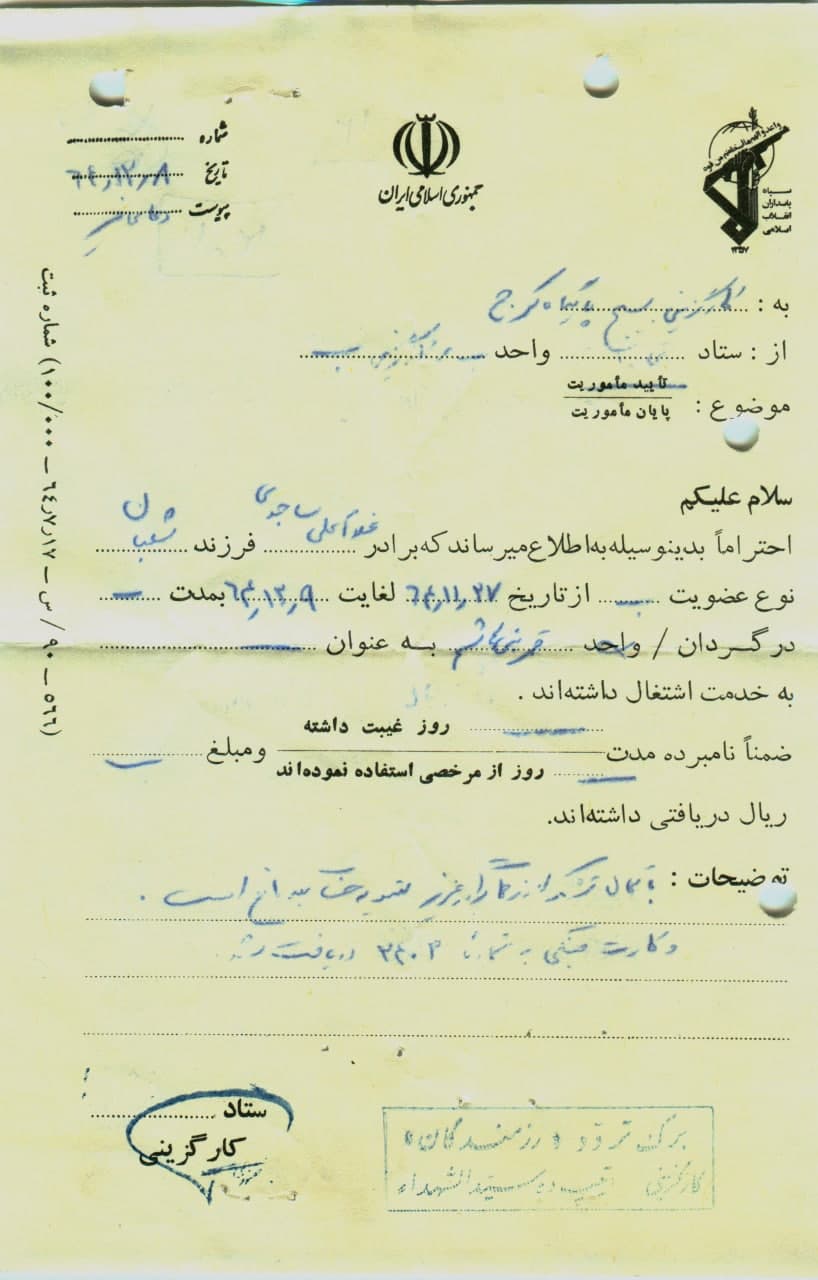 سپاه
پاسداران
انقلاب
اسلامی
۱۳۵۷
جمهوری اسلامی ایران
شماره
تاریخ ۶۴،۱۲،۸
پیوست
به : کارگزینی بسیج پایگاه کرج
از : ستاد واحد
موضوع : تأیید مأموریت
پایان مأموریت
سلام علیکم
احتراماً بدینوسیله به اطلاع میرساند که برادر غلامعلی ساجدی فرزند شعبان
نوع عضویت از تاریخ ۶۴،۱۱،۲۷ لغایت ۶۴،۱۲،۹ بمدت
در گردان / واحد به عنوان
به خدمت اشتغال داشته‌اند .
ضمناً نامبرده مدت روز غیبت داشته
روز از مرخصی استفاده نموده‌اند
و مبلغ
ریال دریافتی داشته‌اند.
توضیحات : با کمال تشکر از است .
و کارت جنگی به شماره ۳۴۰۳ دریافت شد.
ستاد
کارگزینی
برگ تردد «رزمندگان»
کارگزینی تیپ ده سیدالشهداء
(۵۶۶ – ۹۰ / س – ۶۴٫۷٫۱۷ – ۱۰۰/۰۰۰) شماره ثبت